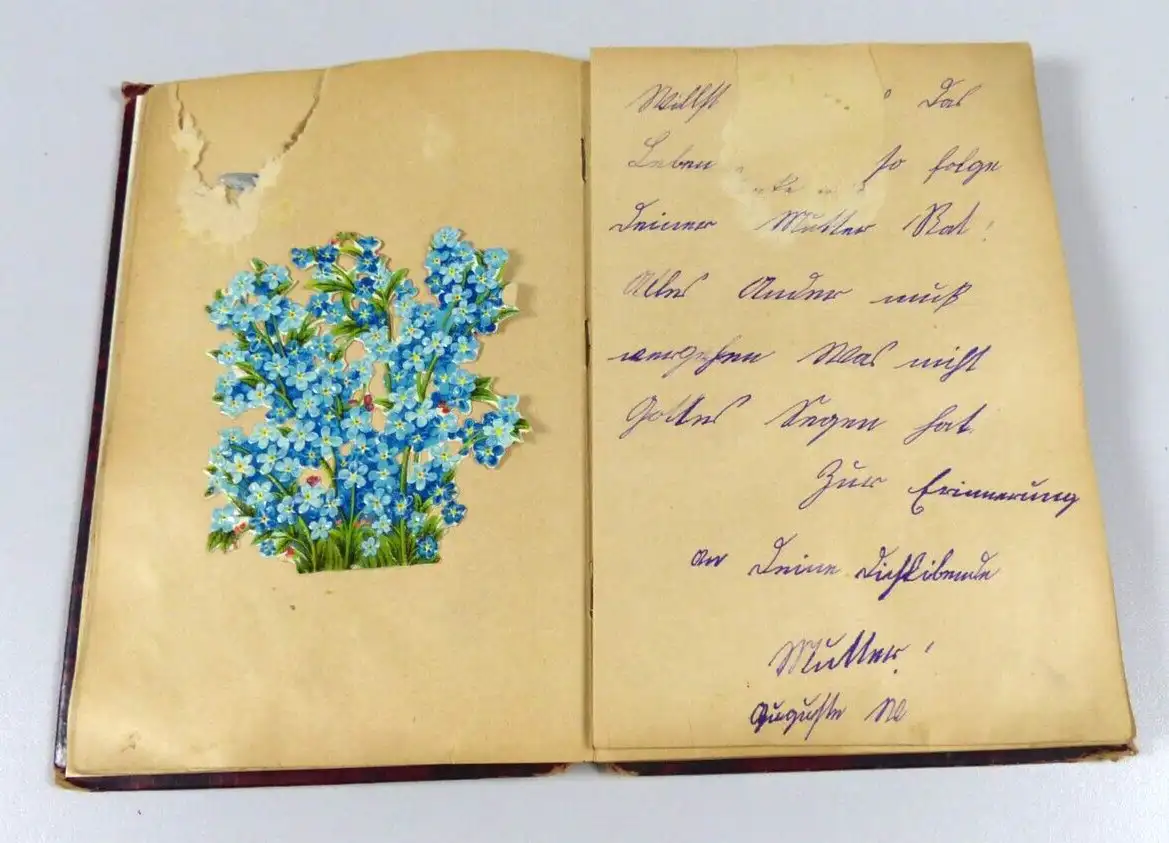 Willst Das
Leben so folge
Deiner Mutter Rat!
Alles Ander muß
vergehen Was nicht
Gottes Segen hat.
Zur Erinnerung
an Deine Dichlibende
Mutter!
Auguste W